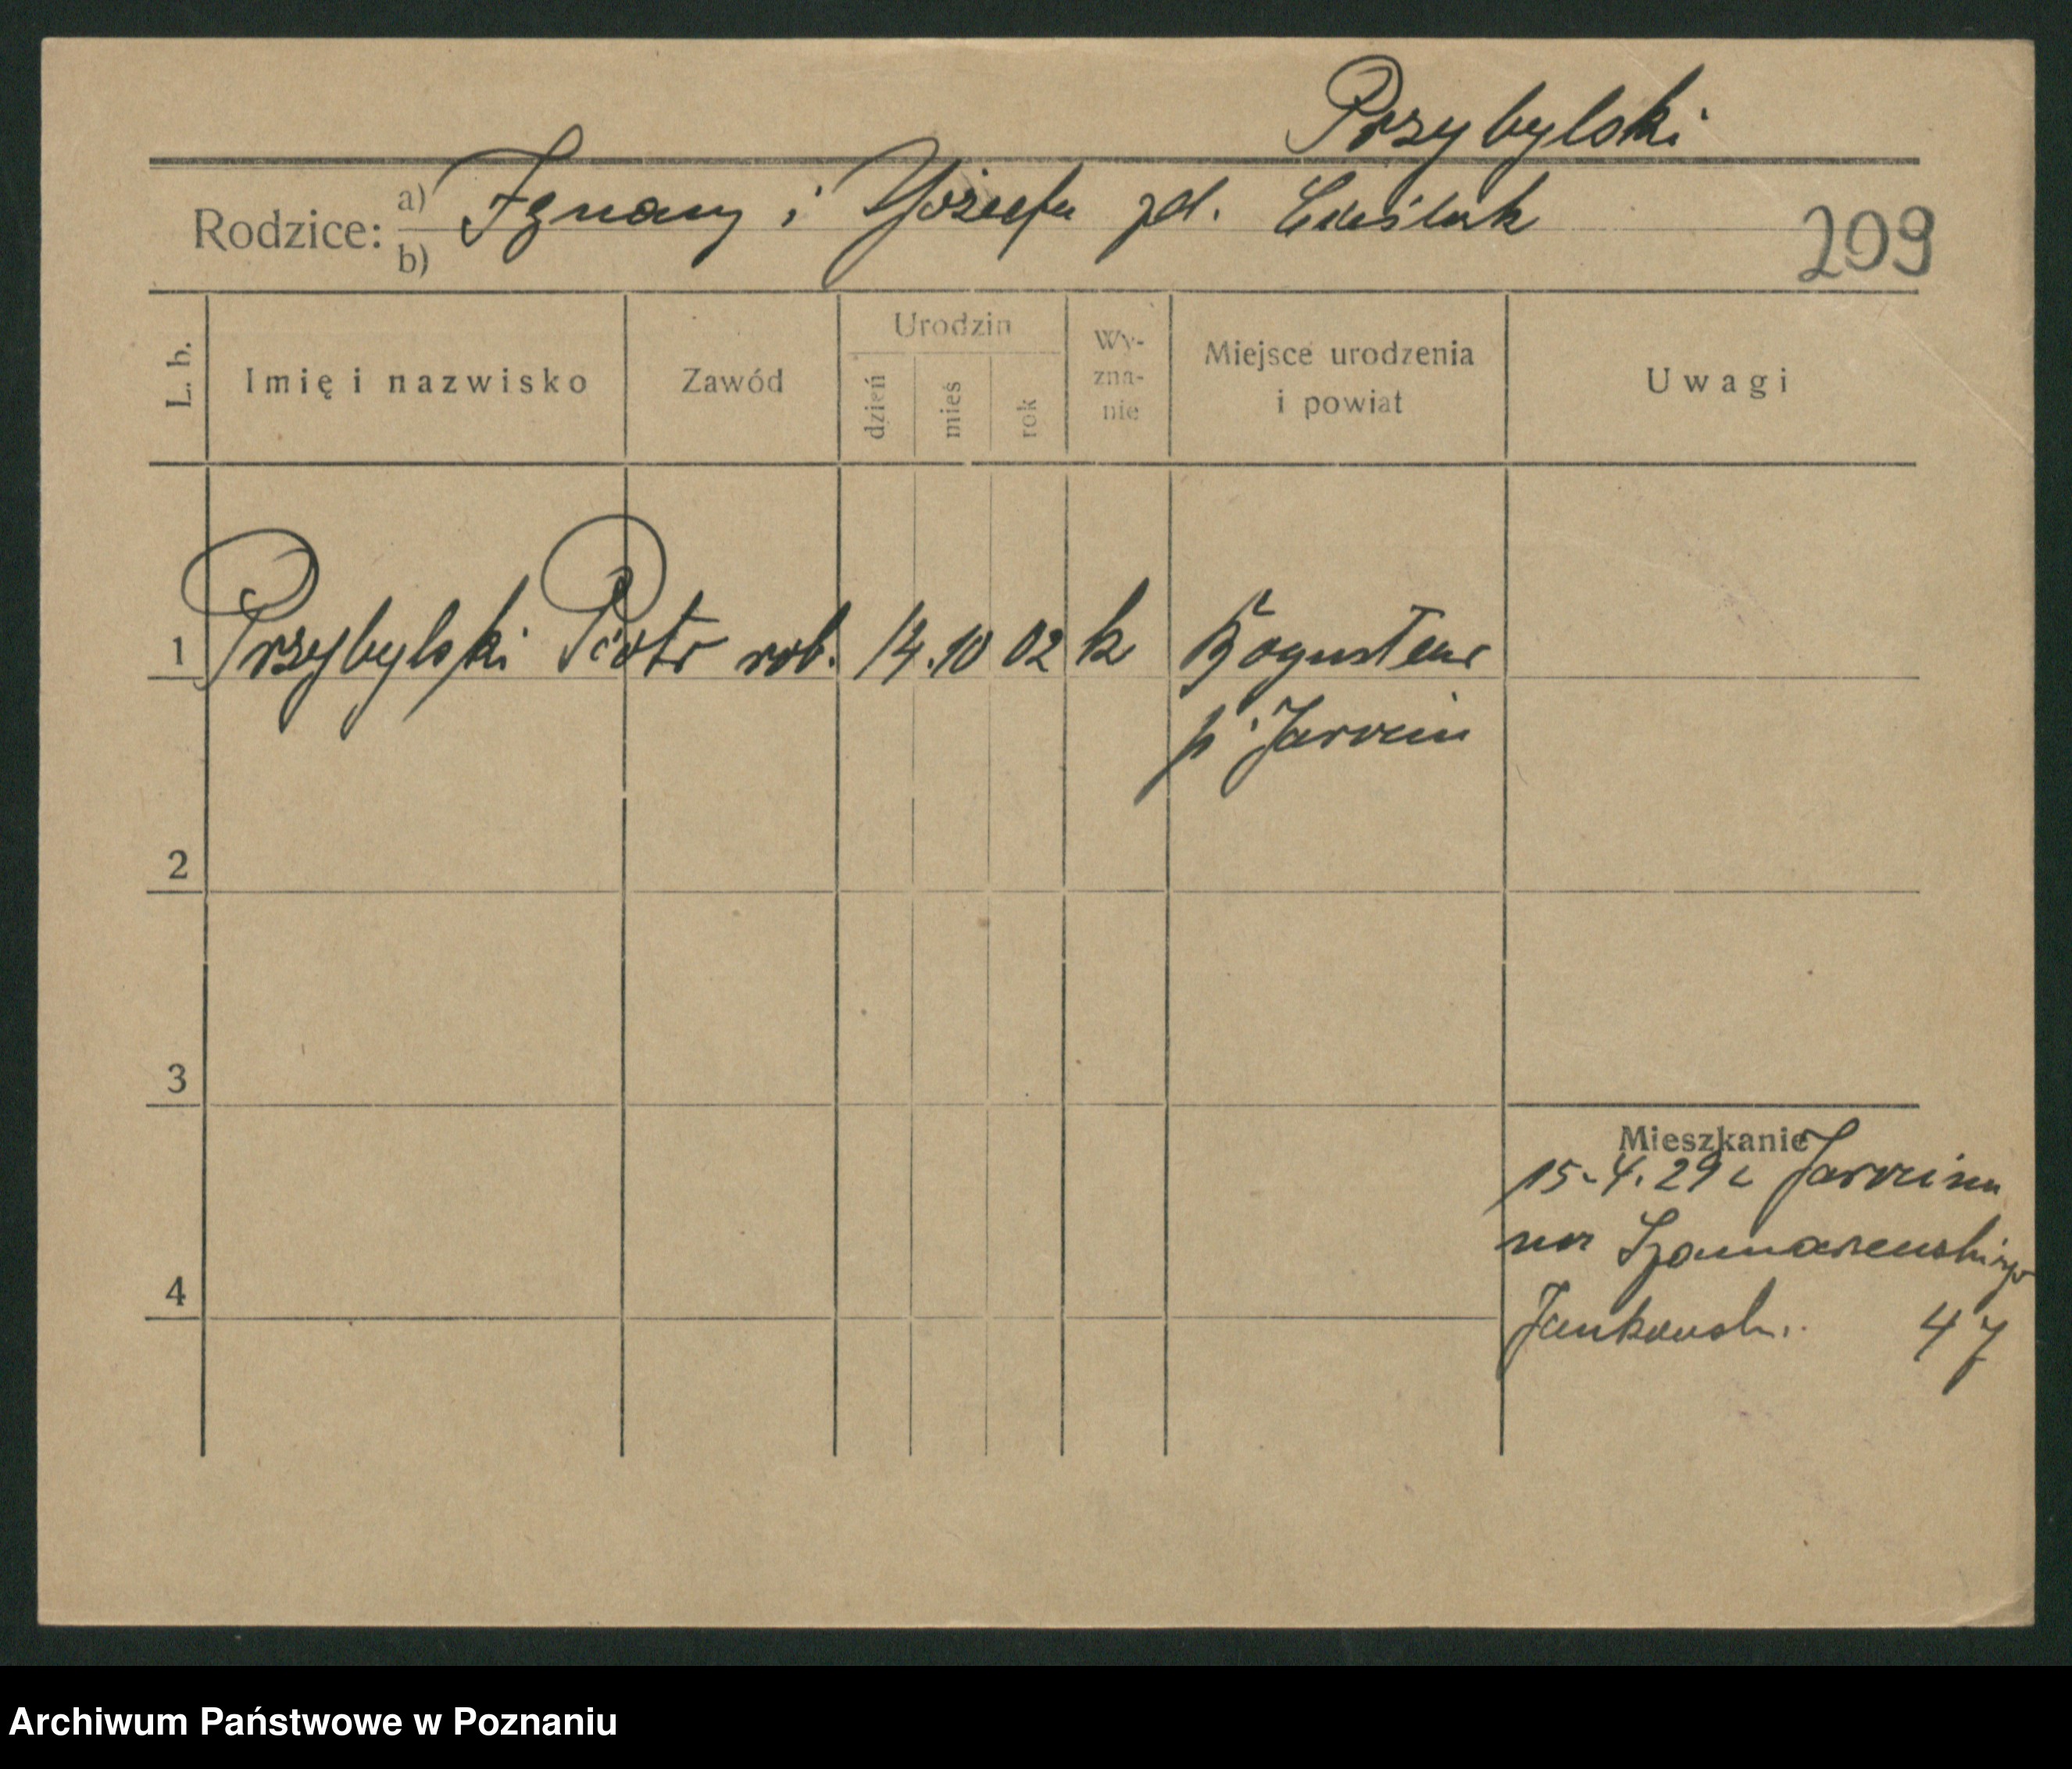 Przybylski
Rodzice: a) Ignacy i Józefa zd. Cieślak
b)
209
L. b. Imię i nazwisko Zawód Urodzin dzień mieś rok Wy-zna-nie Miejsce urodzenia i powiat Uwagi
1 Przybylski Piotr rob. 14. 10 02 k
p. Jarocin
2
3
Mieszkanie
15-4.29 z Jarocina
na
4
Jankowsk. 47
Archiwum Państwowe w Poznaniu